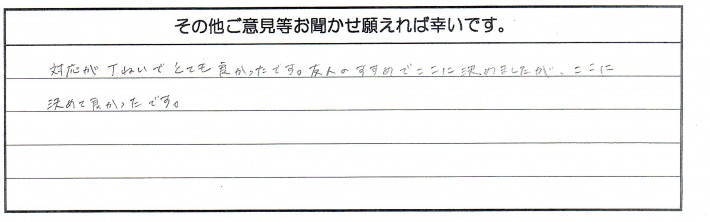 その他ご意見等お聞かせ願えれば幸いです。
対応が丁ねいでとても良かったです。友人のすすめでここに決めましたが、ここに
決めて良かったです。